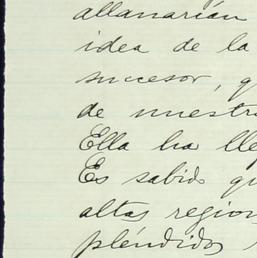 allanarían
idea de la
sucesor, q
de nuestr
Ella ha lle
Es sabido qu
altas region
pléndidos